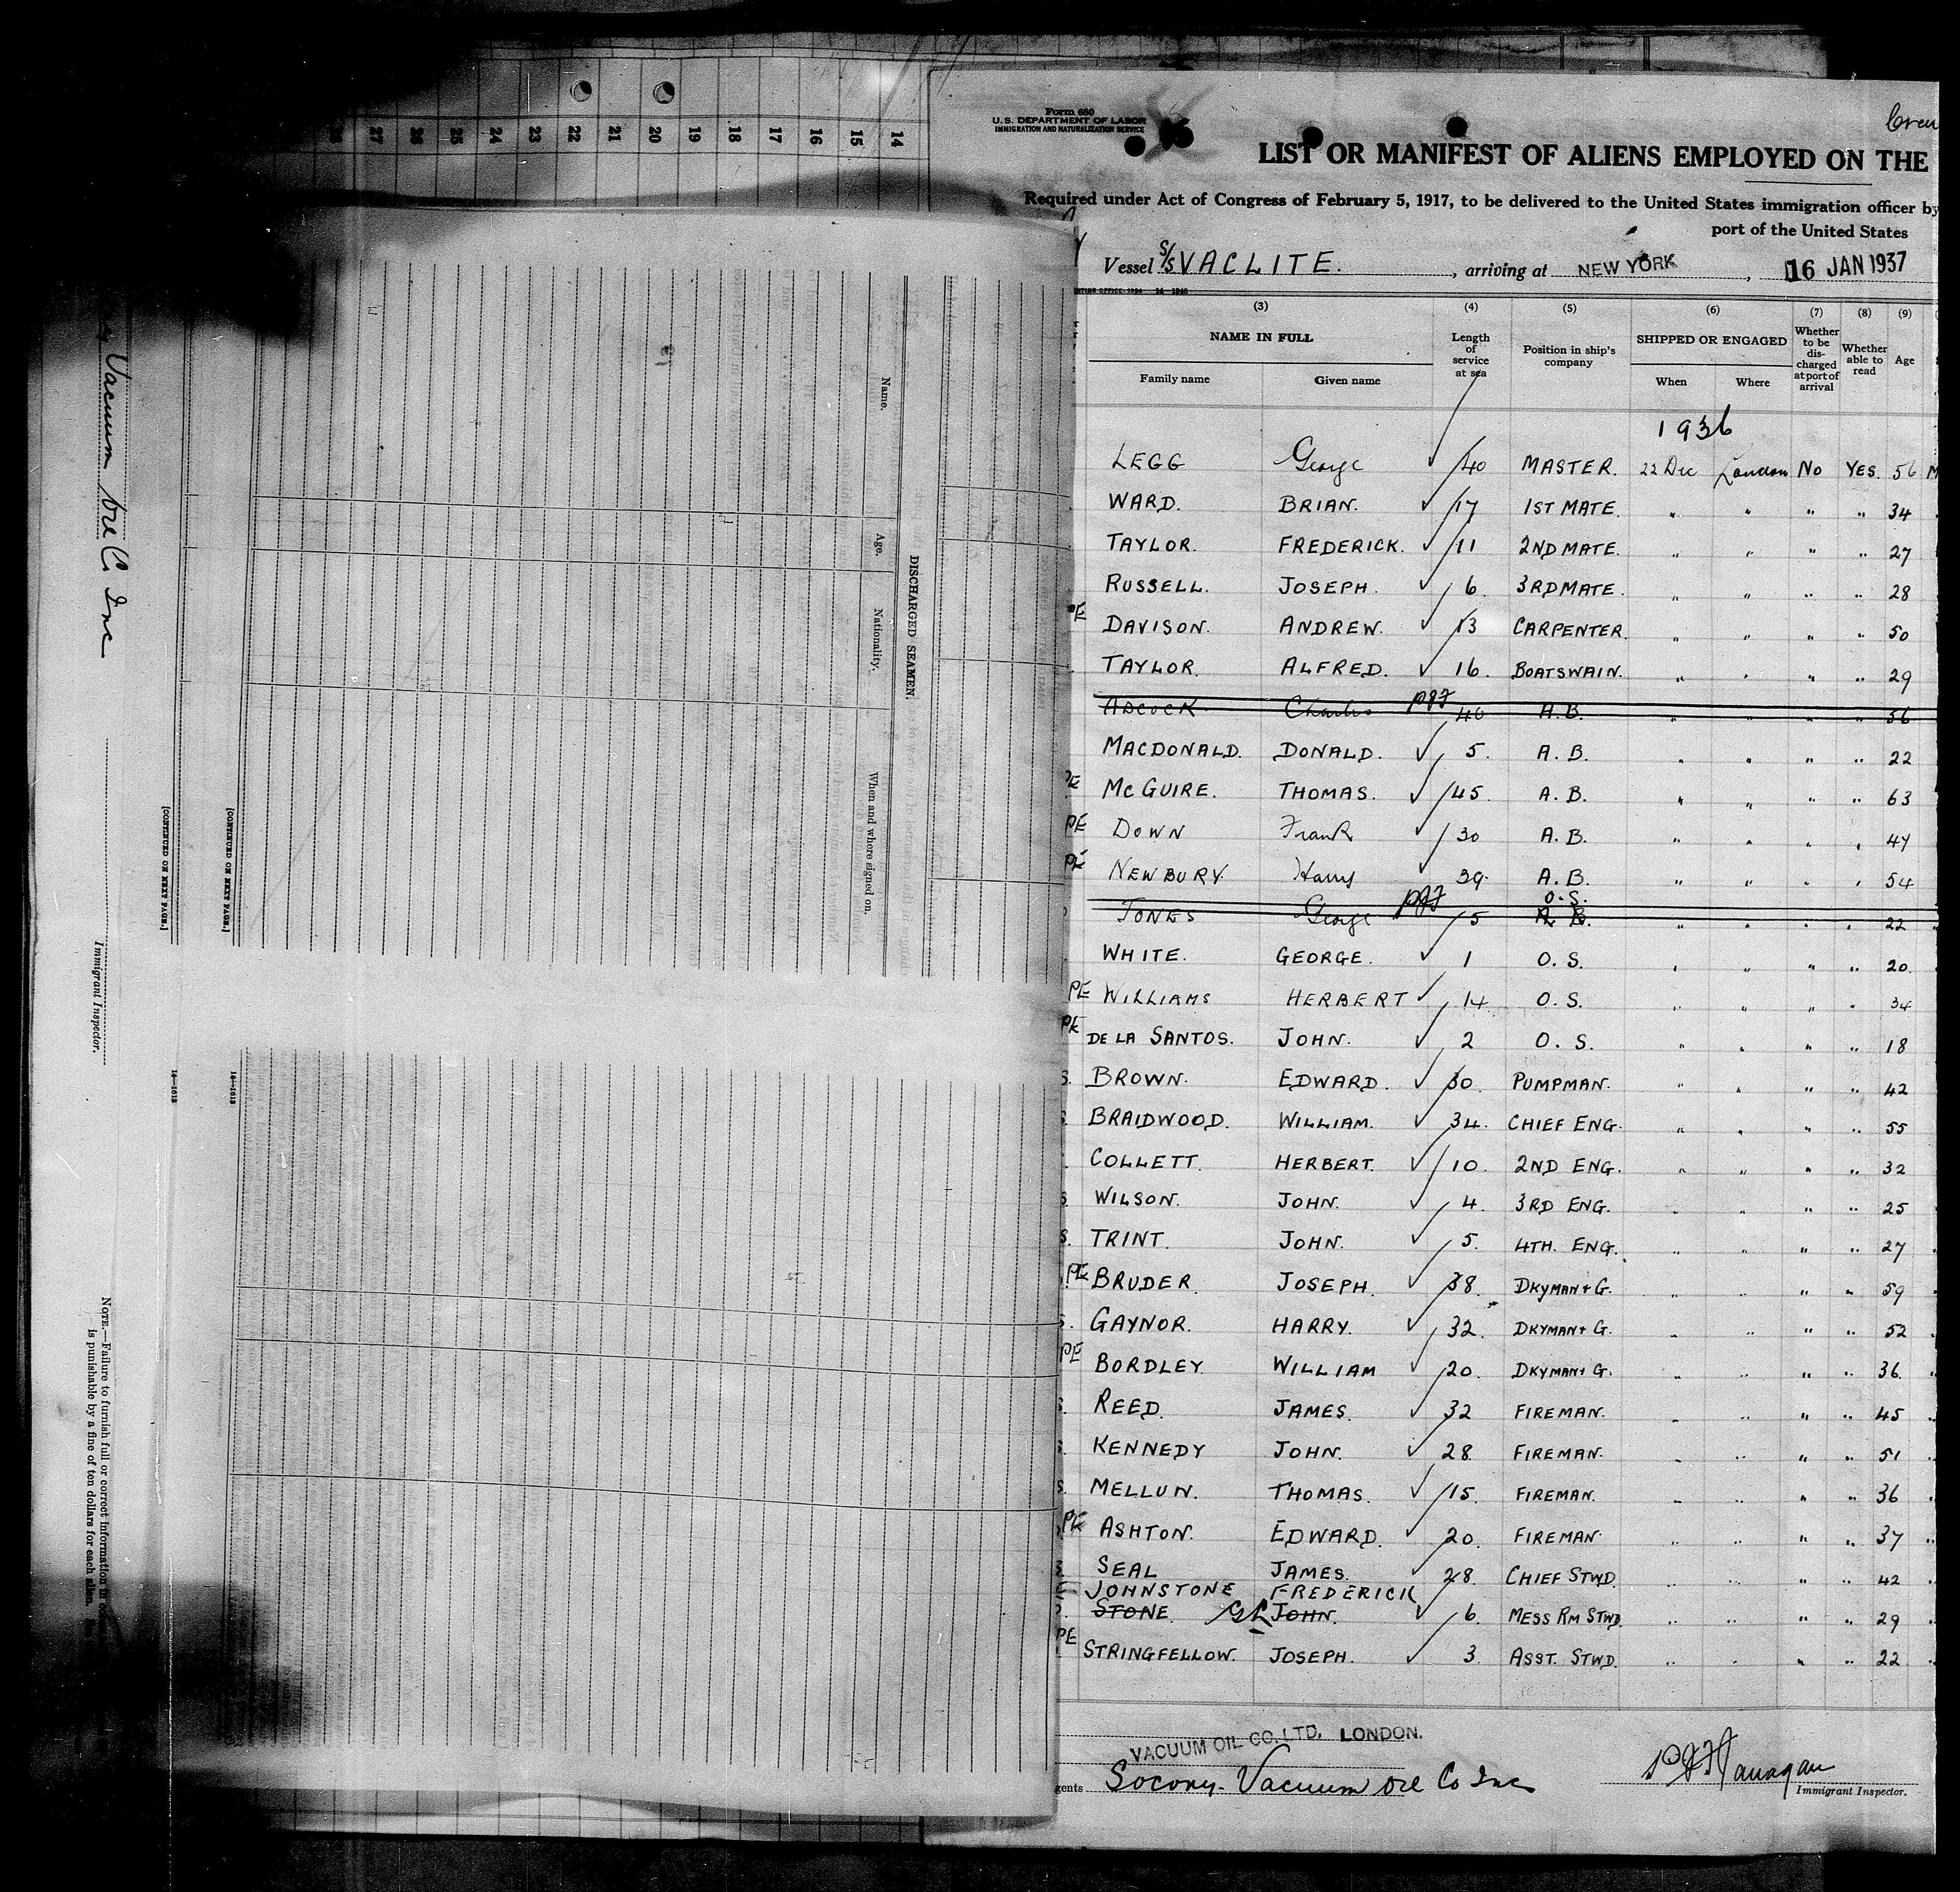 28 27 26 25 24 23 22 21 20 19 18 17 16 15 14
Vacuum Oil Co. Inc
Immigrant Inspector.
NOTE.—Failure to furnish full or correct information
is punishable by a fine of ten dollars for each alien.
[CONTINUED ON NEXT PAGE.]
14—1613
[CONTINUED ON NEXT PAGE.]
14—1613
DISCHARGED SEAMEN.
Name. Age. Nationality. When and where signed on.
Form 680
U. S. DEPARTMENT OF LABOR
IMMIGRATION AND NATURALIZATION SERVICE
Crew
LIST OR MANIFEST OF ALIENS EMPLOYED ON THE
Required under Act of Congress of February 5, 1917, to be delivered to the United States immigration officer by
port of the United States
Vessel S/S VACLITE. , arriving at NEW YORK , 16 JAN 1937
(3) (4) (5) (6) (7) (8) (9)
NAME IN FULL Length of service at sea Position in ship's company SHIPPED OR ENGAGED Whether to be discharged at port of arrival Whether able to read Age
Family name Given name When Where
1936
LEGG George 40 MASTER. 22 Dec London No YES. 56
WARD. BRIAN. 17 1ST MATE. " " " " 34
TAYLOR. FREDERICK. 11 2ND MATE. " " " " 27
RUSSELL. JOSEPH. 6. 3RD MATE. " " " " 28
PE DAVISON. ANDREW. 13 CARPENTER. " " " " 50
TAYLOR. ALFRED. 16. BOATSWAIN. " " " " 29
ADCOCK Charles PJF 40 A.B. " " " " 56
MACDONALD. DONALD. 5. A. B. " " " " 22
PE MCGUIRE. THOMAS. 45. A. B. " " " " 63
PE DOWN Frank 30 A. B. " " " " 47
PE NEWBURY Harry 39. A. B. " " " " 54
O. S.
JONES George PJF 5 A. B. " " " " 22
WHITE. GEORGE. 1 O. S. " " " " 20.
PE WILLIAMS HERBERT 14 O. S. " " " " 34
PE DE LA SANTOS. JOHN. 2 O. S. " " " " 18
S. BROWN. EDWARD. 30. PUMPMAN. " " " " 42
S. BRAIDWOOD. WILLIAM. 34. CHIEF ENG. " " " " 55
COLLETT. HERBERT. 10. 2ND ENG. " " " " 32
S. WILSON. JOHN. 4. 3RD ENG. " " " " 25
S. TRINT. JOHN. 5. 4TH. ENG. " " " " 27
PE BRUDER. JOSEPH. 38. DKYMAN + G. " " " " 59
S. GAYNOR. HARRY. 32. DKYMAN + G. " " " " 52
PE BORDLEY. WILLIAM 20. DKYMAN + G. " " " " 36.
S. REED. JAMES. 32 FIREMAN. " " " " 45
S. KENNEDY JOHN. 28. FIREMAN. " " " " 51
S. MELLUN. THOMAS. 15. FIREMAN. " " " " 36
PE ASHTON. EDWARD. 20. FIREMAN. " " " " 37
S. SEAL JAMES. 28. CHIEF STWD. " " " " 42
JOHNSTONE FREDERICK
STONE. GL JOHN. 6. MESS RM STWD. " " " " 29
PE STRINGFELLOW. JOSEPH. 3. ASST. STWD. " " " " 22
VACUUM OIL CO. LTD. LONDON.
gents Socony-Vacuum Oil Co Inc
PJ Flanagan
Immigrant Inspector.